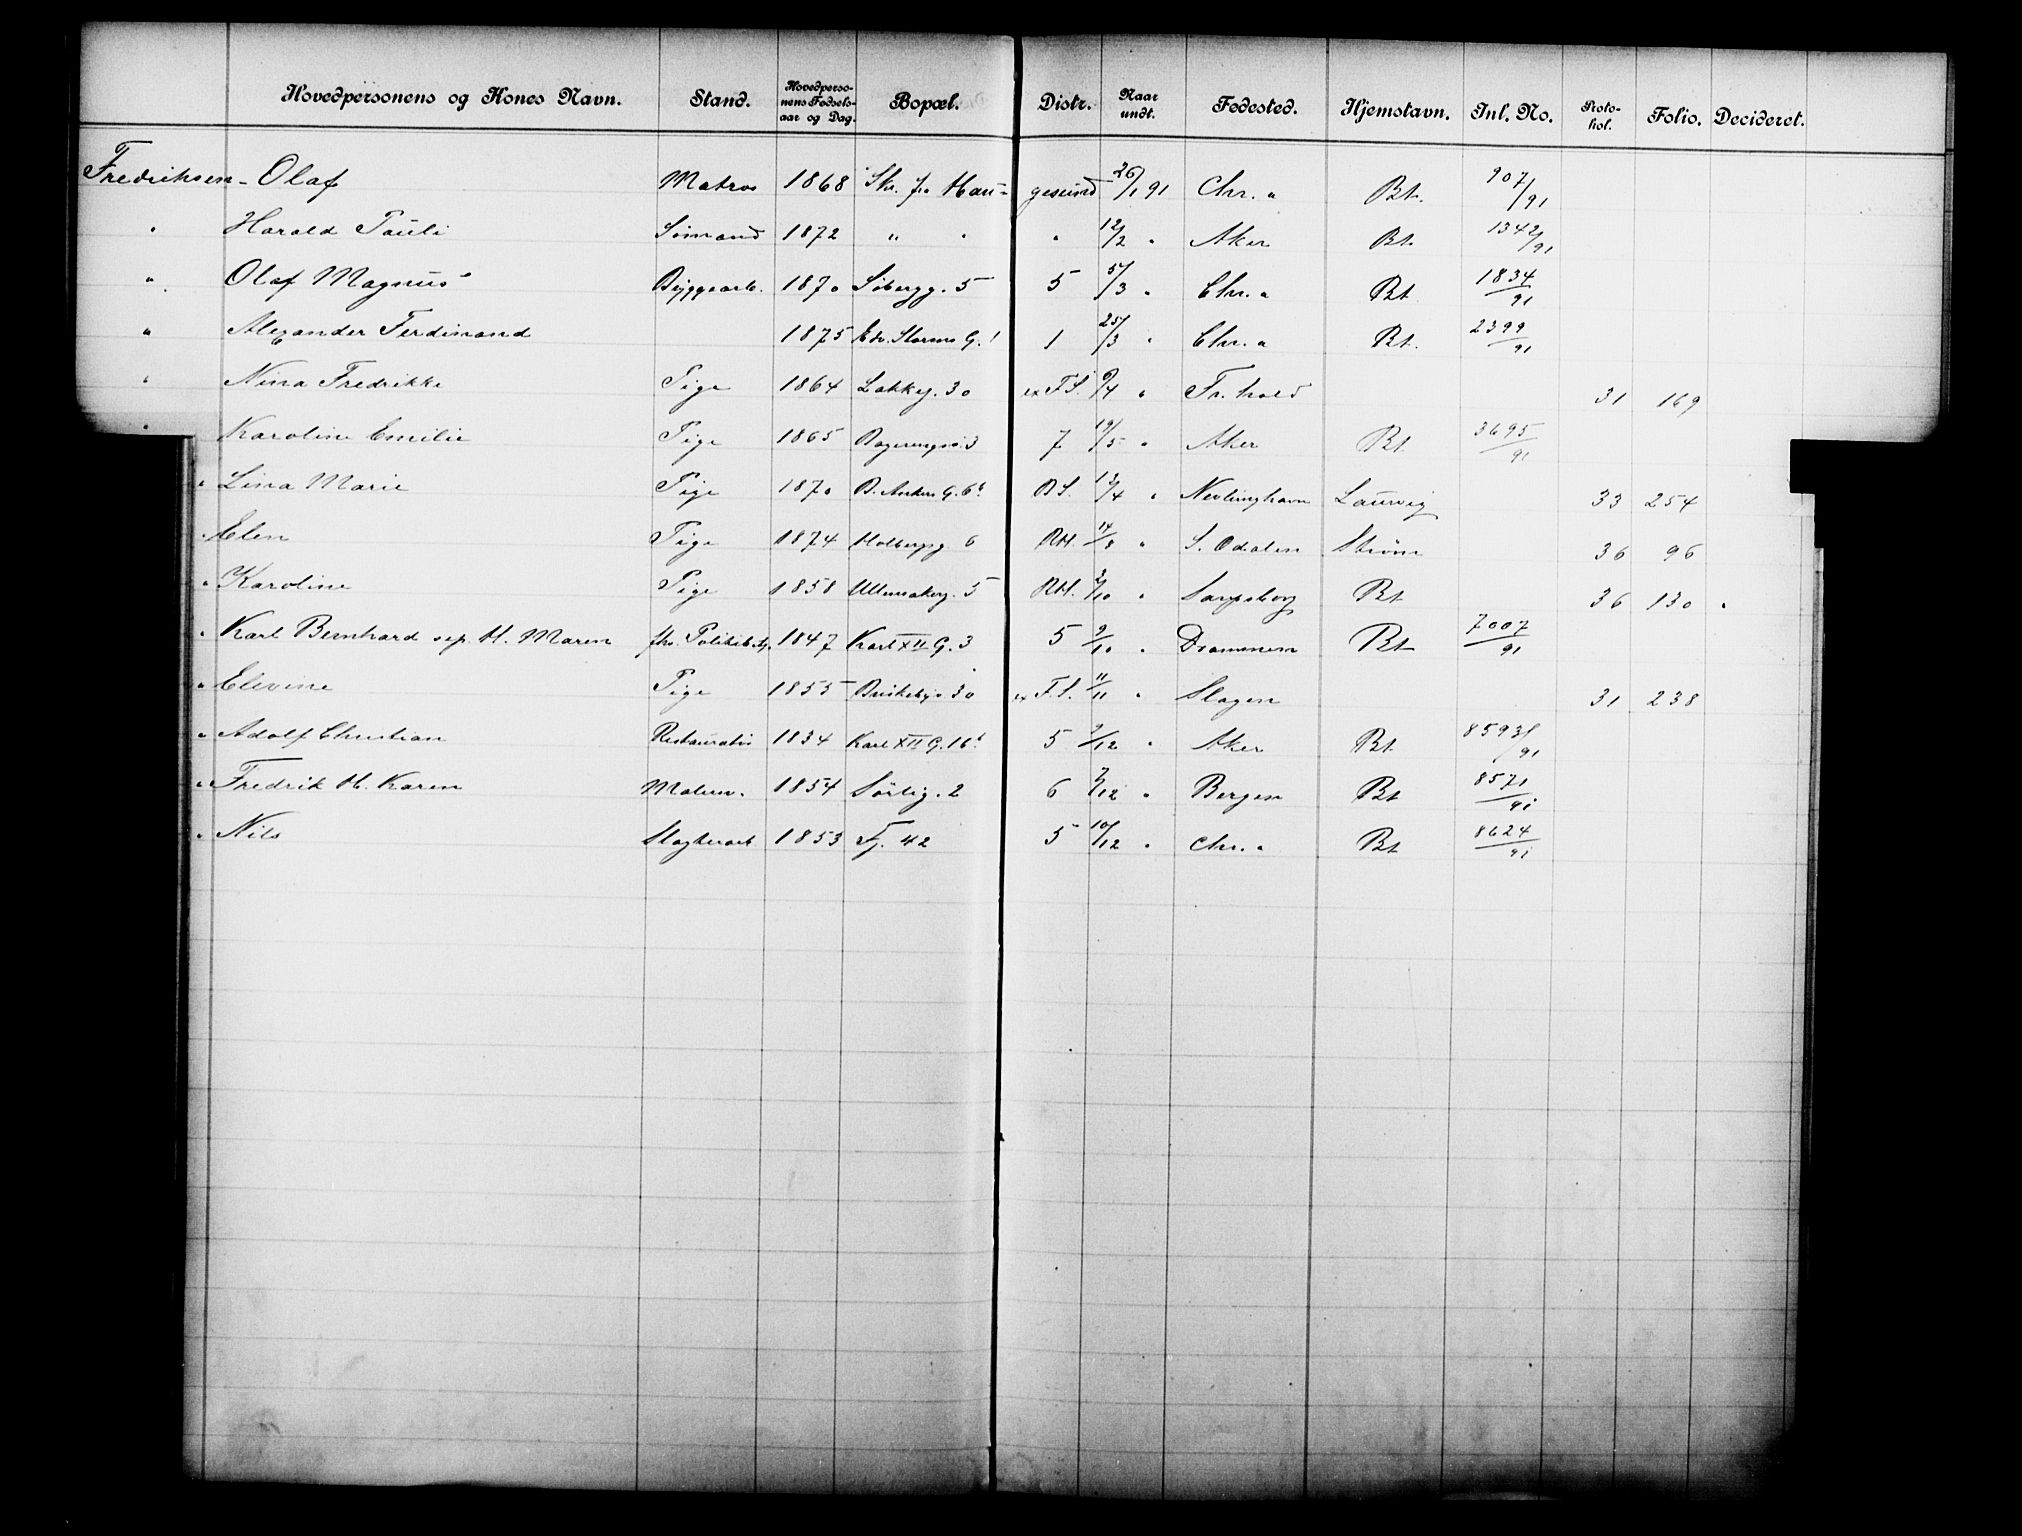 Hovedpersonens og Kones Navn. Stand. Hovedpersonens Fødselsaar og Dag. Bopæl. Distr. Naar undt. Fødested. Hjemstavn. Inl. No. Protokol. Folio. Decideret.
Fredriksen - Olaf Matros 1868 Skr. fra Haugesund 26/1 91 Chr.a Bt. 907/91
" Harald Pauli Sømand 1872 " " " 12/2 " Aker Bt. 1342/91
" Olaf Magnus Byggearb. 1870 Søbergg. 5 5 5/3 " Chr.a Bt 1834/91
" Alexander Ferdinand 1875 Edv. Storms G. 1 1 25/3 " Chr.a Bt. 2399/91
" Nina Fredrikke Pige 1864 Løkkeg. 30 ex F.S. 9/4 " Fr.hald 31 169
" Karoline Emilie Pige 1865 3 7 19/5 " Aker Bt. 3695/91
" Lina Marie Pige 1870 B. Ankers G. 6b. BS. 12/4 " Nevlinghavn Laurvig 33 254
" Elen Pige 1874 Holbergsg 6 RH. 14/8 " S. Odalen Strøm 36 96
" Karoline Pige 1858 Ullensakerg. 5 RH. 2/10 " Sarpsborg Bt 36 130 "
" Karl Bernhard sep. H. Maren fhv. Politibetj. 1847 Karl XII G. 3 5 9/10 " Drammen Bt 7007/91
" Elevine Pige 1855 Briskebyv 30 ex F.S. 11/11 " Slagen 31 238
" Adolf Christian Restauratør 1834 Karl XII G. 16b 5 9/12 " Aker Bt 8593/91
" Fredrik H. Karen Malersv. 1854 Sørlig. 2 6 7/12 " Bergen Bt 8571/91
" Nils Slagterarb 1853 Fj. 42 5 10/12 " Chr.a Bt 8624/91